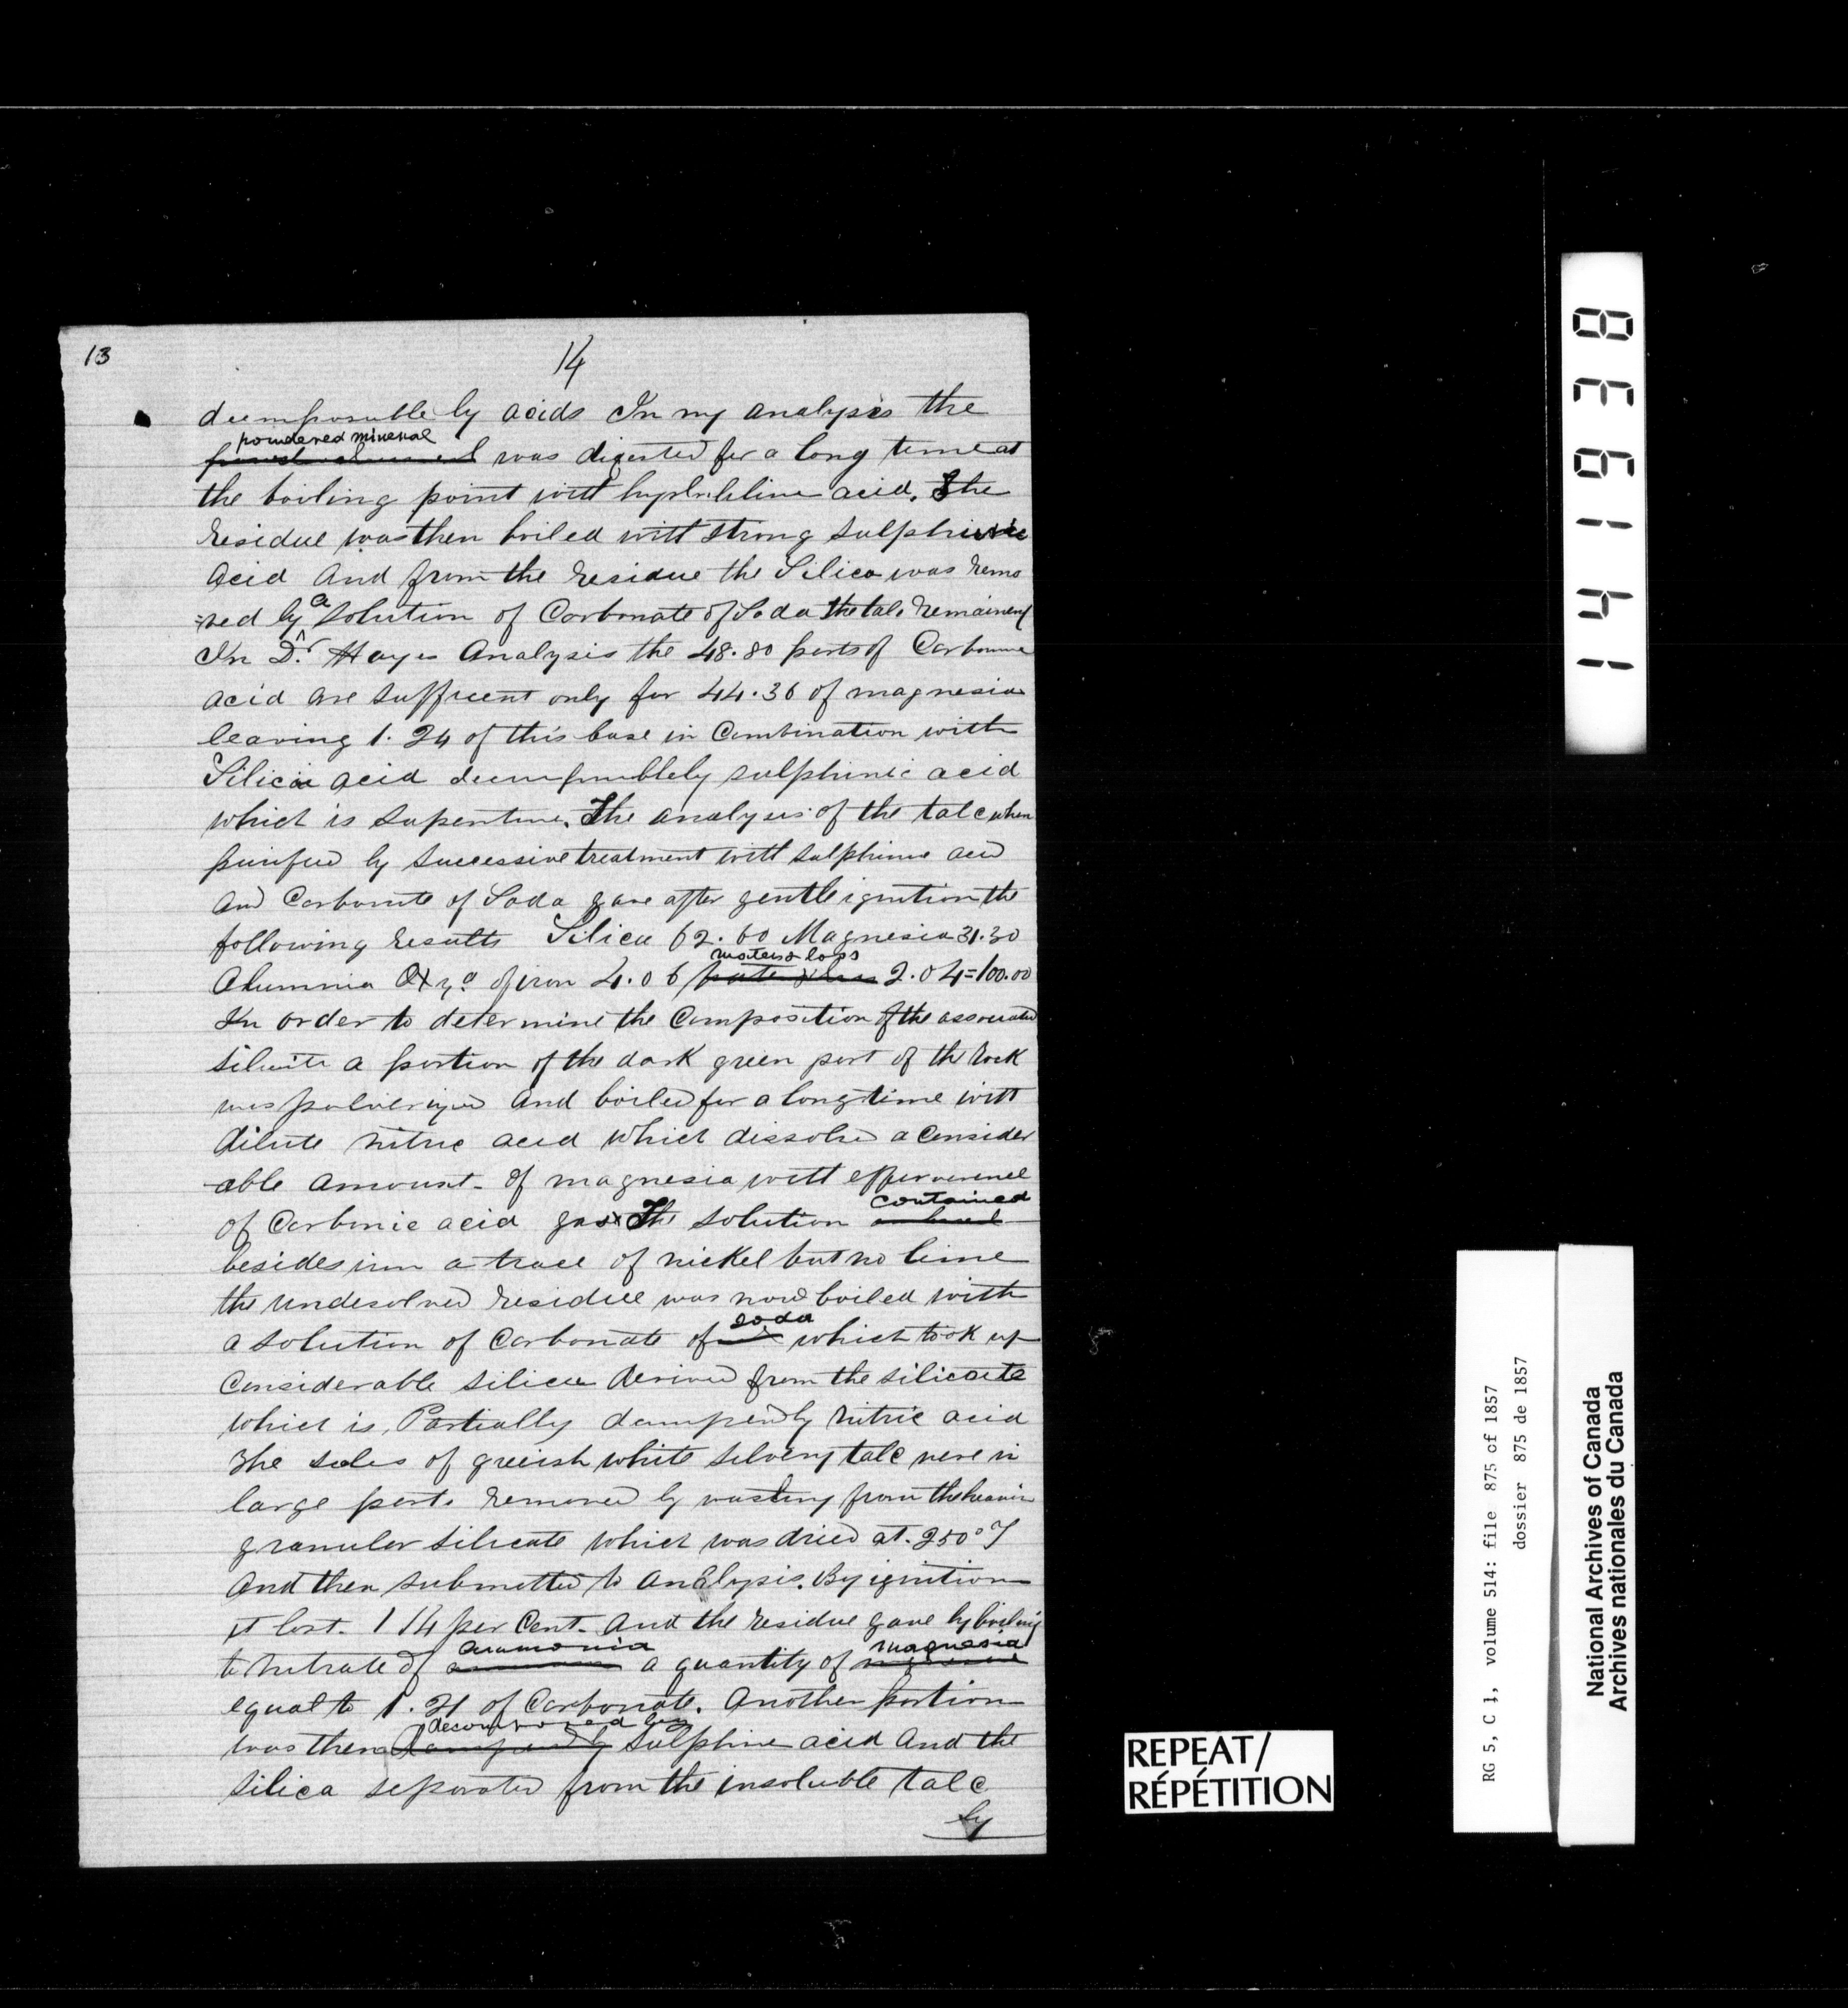 13
14
decomposable by acids In my analysis the
powdered mineral
was digested for a long time at
the boiling point with hydrochloric acid. The
residue was then boiled with strong sulphuric
acid and from the residue the Silica was remo
=ved by a solution of Carbonate of Soda the talc remained
In Dr. Hayes Analysis the 48.80 parts of Carbonic
acid are sufficent only for 44.36 of magnesia
leaving 1.24 of this base in Combination with
Silicic acid by sulphuric acid
which is The analysis of the talc when
purified by successive treatment with sulphuric acid
and Carbonate of Soda gave after gentle ignition the
following results Silica 62.60 Magnesia 31.30
water & loss
Alumnia Oxyd of iron 4.06 2.04=100.00
In order to determine the Composition of the associated
silicate a portion of the dark green part of the rock
was pulverized and boiled for a long time with
dilute nitric acid which dissolved a Consider
-able amount of magnesia with
contained
of Carbonic acid gas The solution
besides iron a trace of nickel but no lime
the undesolved residue was now boiled with
soda
a solution of Carbonate of which took up
Considerable silica derived from the silicate
which is Partially by nitric acid
The of white silvery talc were in
large part removed by washing from the heavier
granular silicate which was dried at 250°F
And then submitted to analysis. By ignition
it lost 1 14 per Cent. And the residue gave by boiling
ammonia magnesia
to nitrate of a quantity of
equal to 1.21 of Carbonate. Another portion
decomposed by
was then acid And the
silica separated from the insoluble talc
by
REPEAT/
RÉPÉTITION
141638
RG 5, C 1, volume 514: file 875 of 1857
dossier 875 de 1857
National Archives of Canada
Archives nationales du Canada